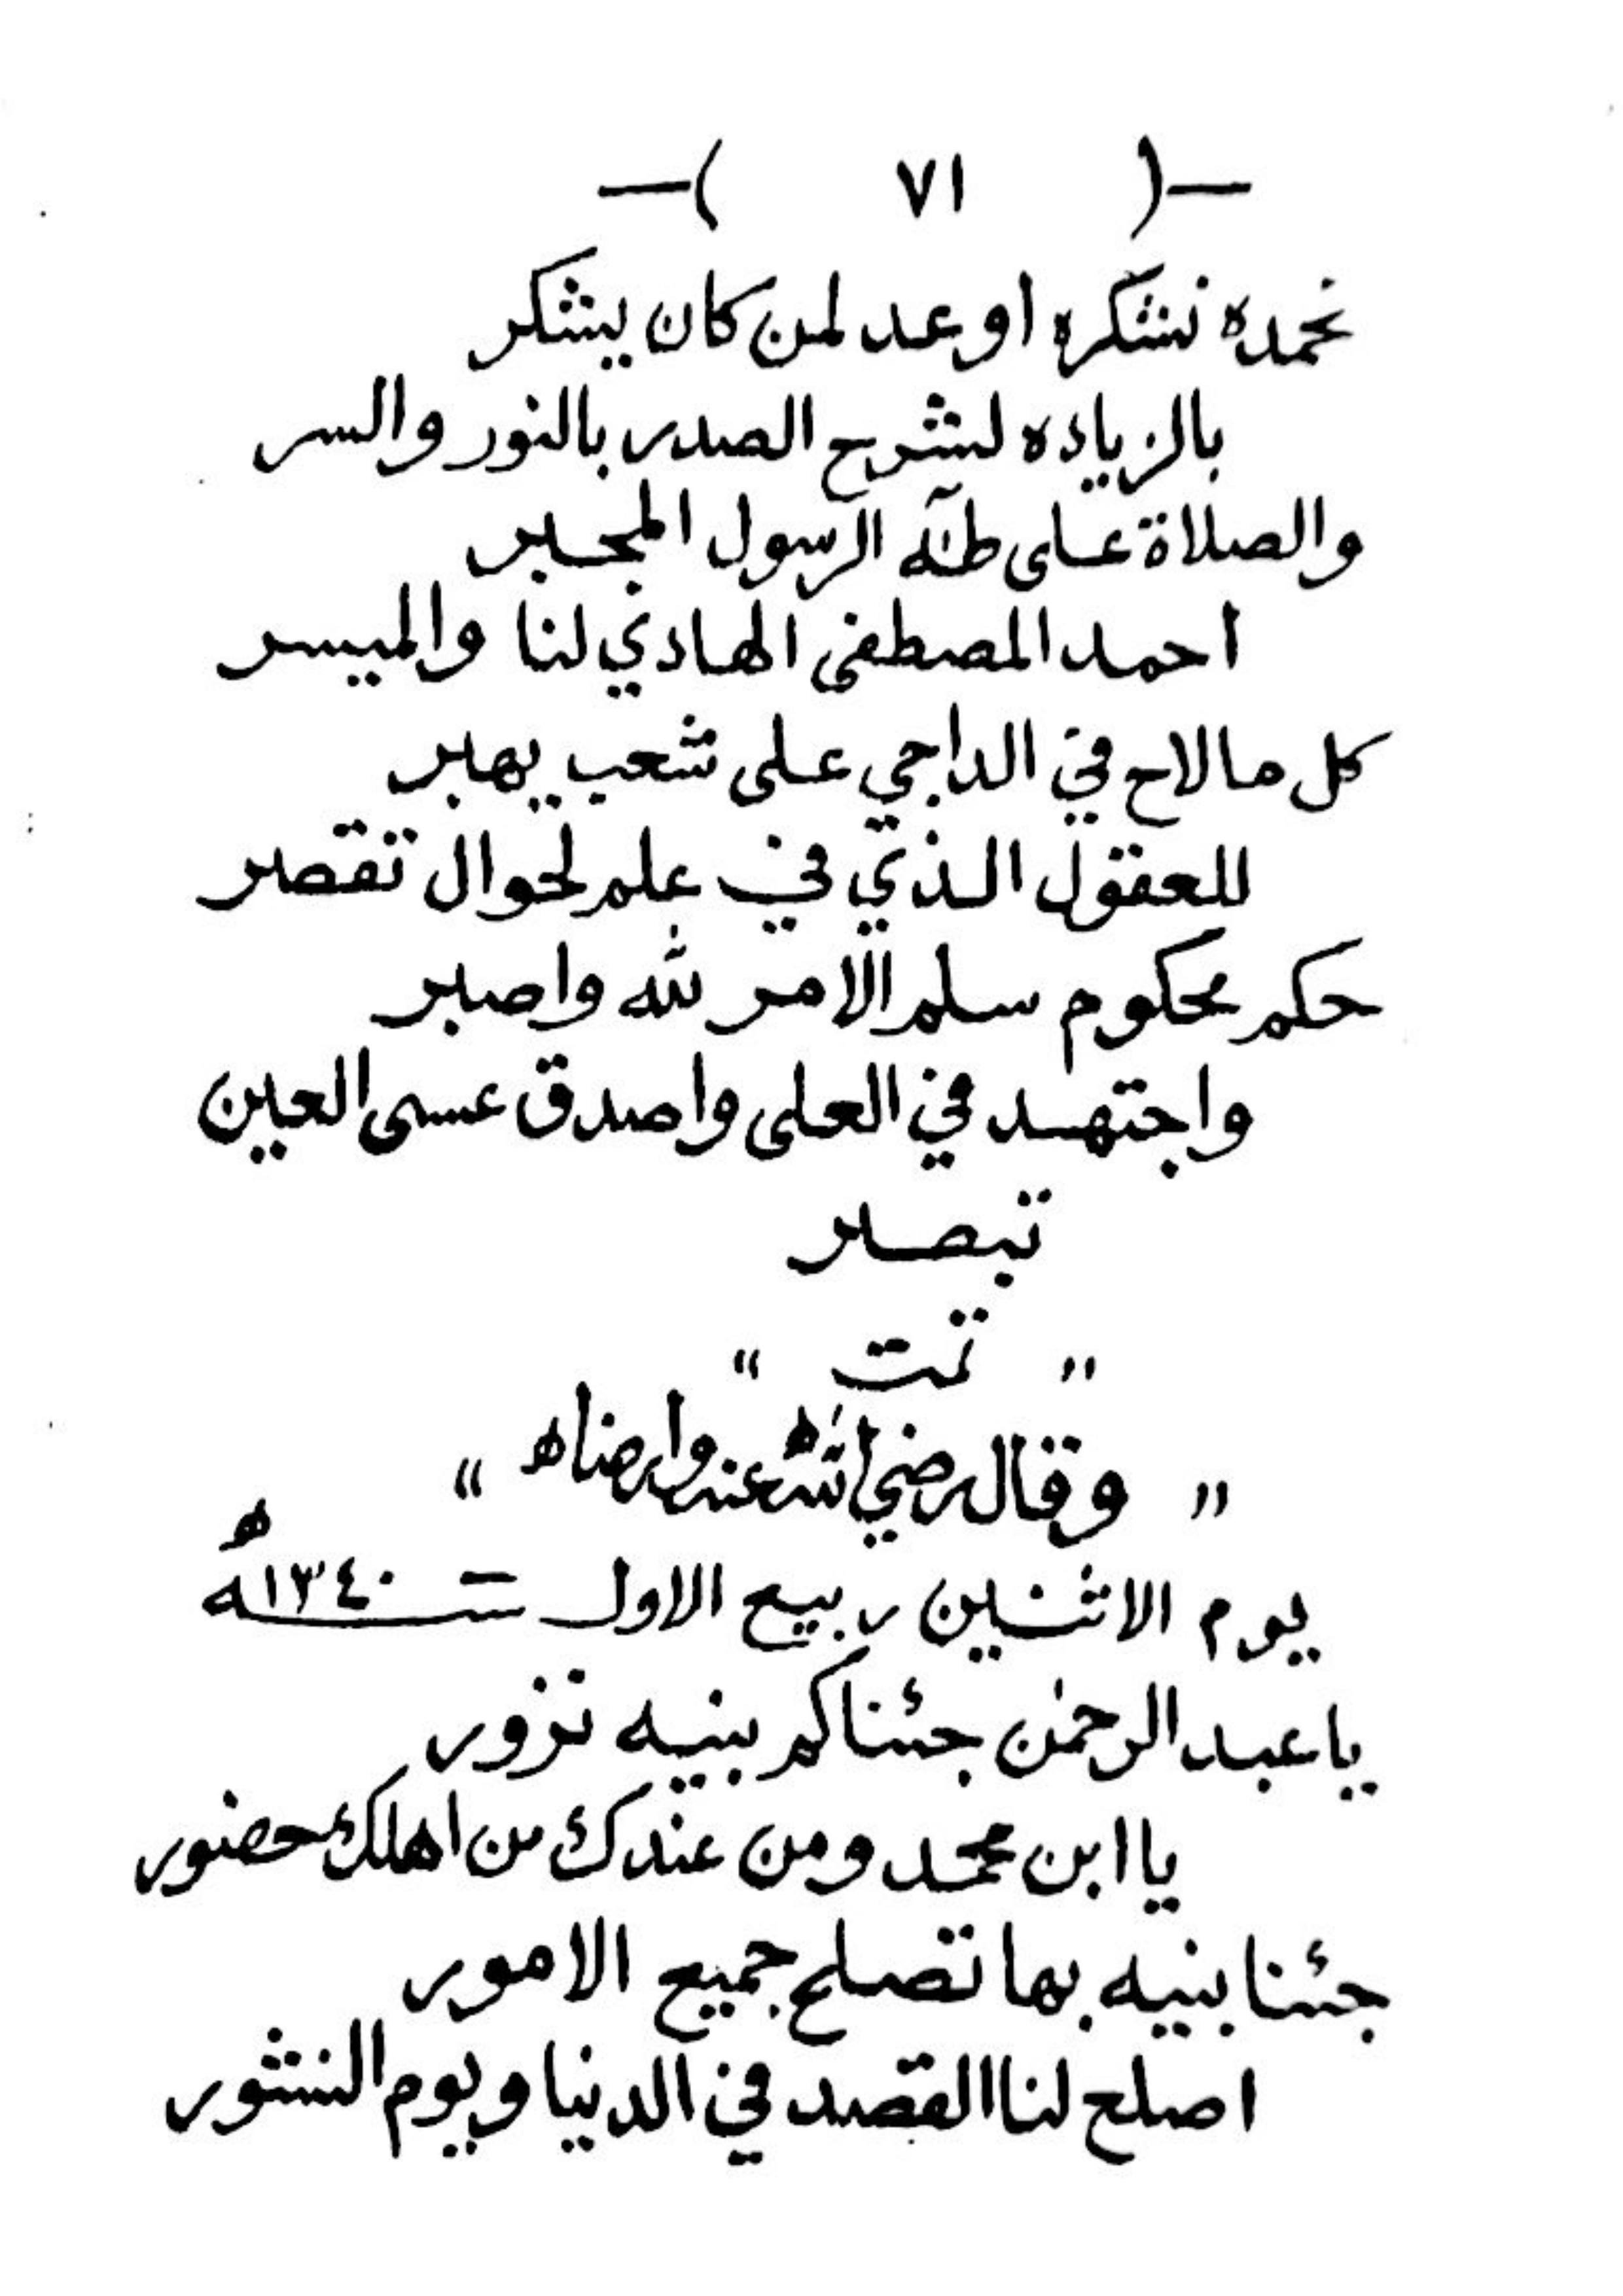 —( ٧١ )—
نحمده نشكره اوعد لمن كان يشكر
بالزياده لشرح الصدر بالنور والسر
والصلاة على طه الرسول المخبر
احمد المصطفى الهادي لنا والميسر
كل ما لاح في الداجي على شعب يهبر
للعقول الذي في علم لحوال تقصر
حكم محكوم سلم الامر لله واصبر
واجتهد في العلى واصدق عسى العين
تبصر
" تمت "
" وقال رضي الله عنه وارضاه "
يوم الاثنين ربيع الاول سنة ١٣٤٠ ه
يا عبد الرحمن جئناكم بنيه نزور
يا ابن محمد ومن عندك من اهلك حضور
جئنا بنيه بها تصلح جميع الامور
اصلح لنا القصد في الدنيا ويوم النشور